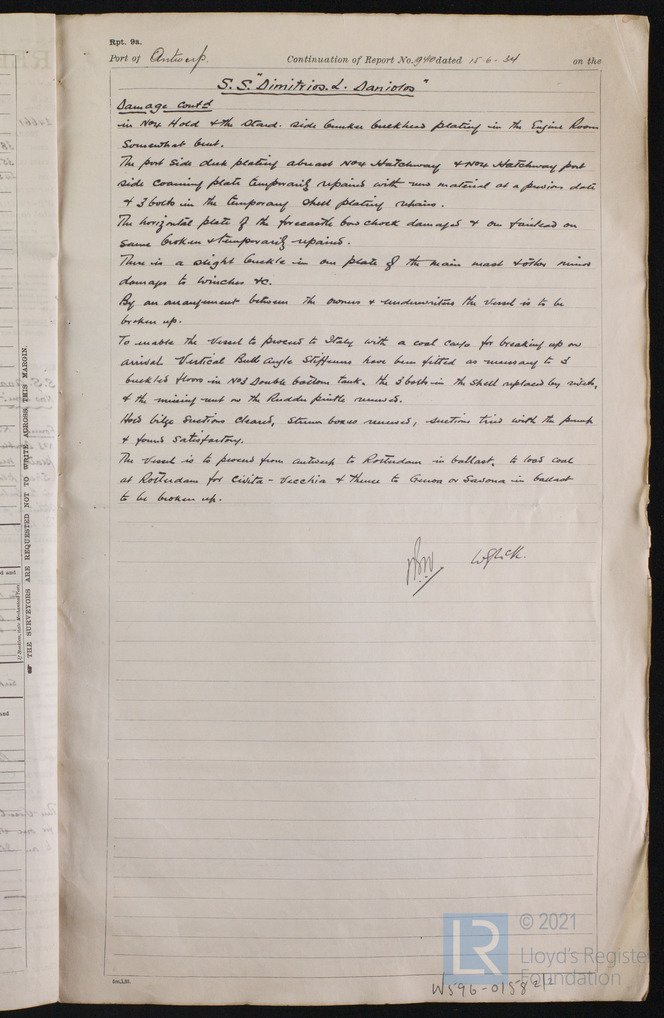 Rpt. 9a.
Port of Antwerp. Continuation of Report No. 940 dated 15-6-34 on the
S.S. "Dimitrios. L. Daniolos"
Damage Cont'd
in No4 Hold & the Starb. side bunker bulkhead plating in the Engine Room
somewhat bent.
The port side deck plating abreast No4 Hatchway & No4 Hatchway port
side coaming plate temporarily repaired with new material at a previous date
& 3 bolts in the temporary shell plating repairs.
The horizontal plate of the forecastle bow chock damaged & one fairlead on
same broken & temporarily repaired.
There is a slight buckle in one plate of the main mast & other minor
damages to winches &c.
By an arrangement between the owners & underwriters the vessel is to be
broken up.
To enable the vessel to proceed to Italy with a coal cargo for breaking up on
arrival Vertical Bulb Angle Stiffeners have been fitted as necessary to 3
buckled floors in No3 Double bottom tank. the 3 bolts in the shell replaced by rivets,
& the missing nut on the Rudder pintle renewed.
Hold bilge suctions cleared, strum boxes renewed, suctions tried with the pump
& found satisfactory.
The vessel is to proceed from Antwerp to Rotterdam in ballast, to load coal
at Rotterdam for Civita-Vecchia & thence to Genoa or Savona in ballast
to be broken up.
THE SURVEYORS ARE REQUESTED NOT TO WRITE ACROSS THIS MARGIN.
LR
© 2021
Lloyd's Register
Foundation
W596-0158 2/2